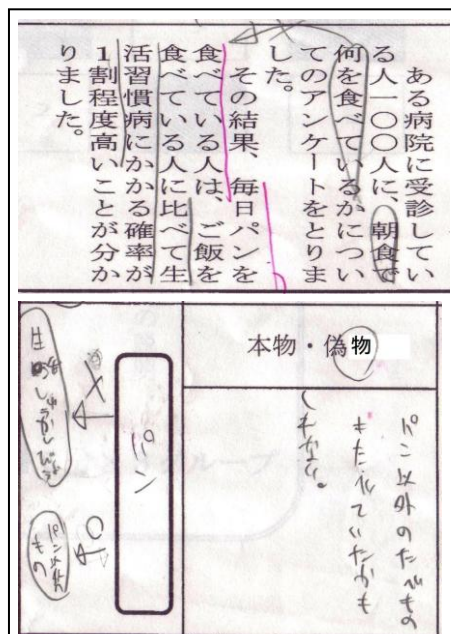 ある病院に受診してい
る人一〇〇人に、朝食で
何を食べているかについ
てのアンケートをとりま
した。
その結果、毎日パンを
食べている人は、ご飯を
食べている人に比べて生
活習慣病にかかる確率が
1割程度高いことが分か
りました。
本物・偽物
パン以外のたべもの
もたべていたかも
しれない。
パン
パン以外
もの